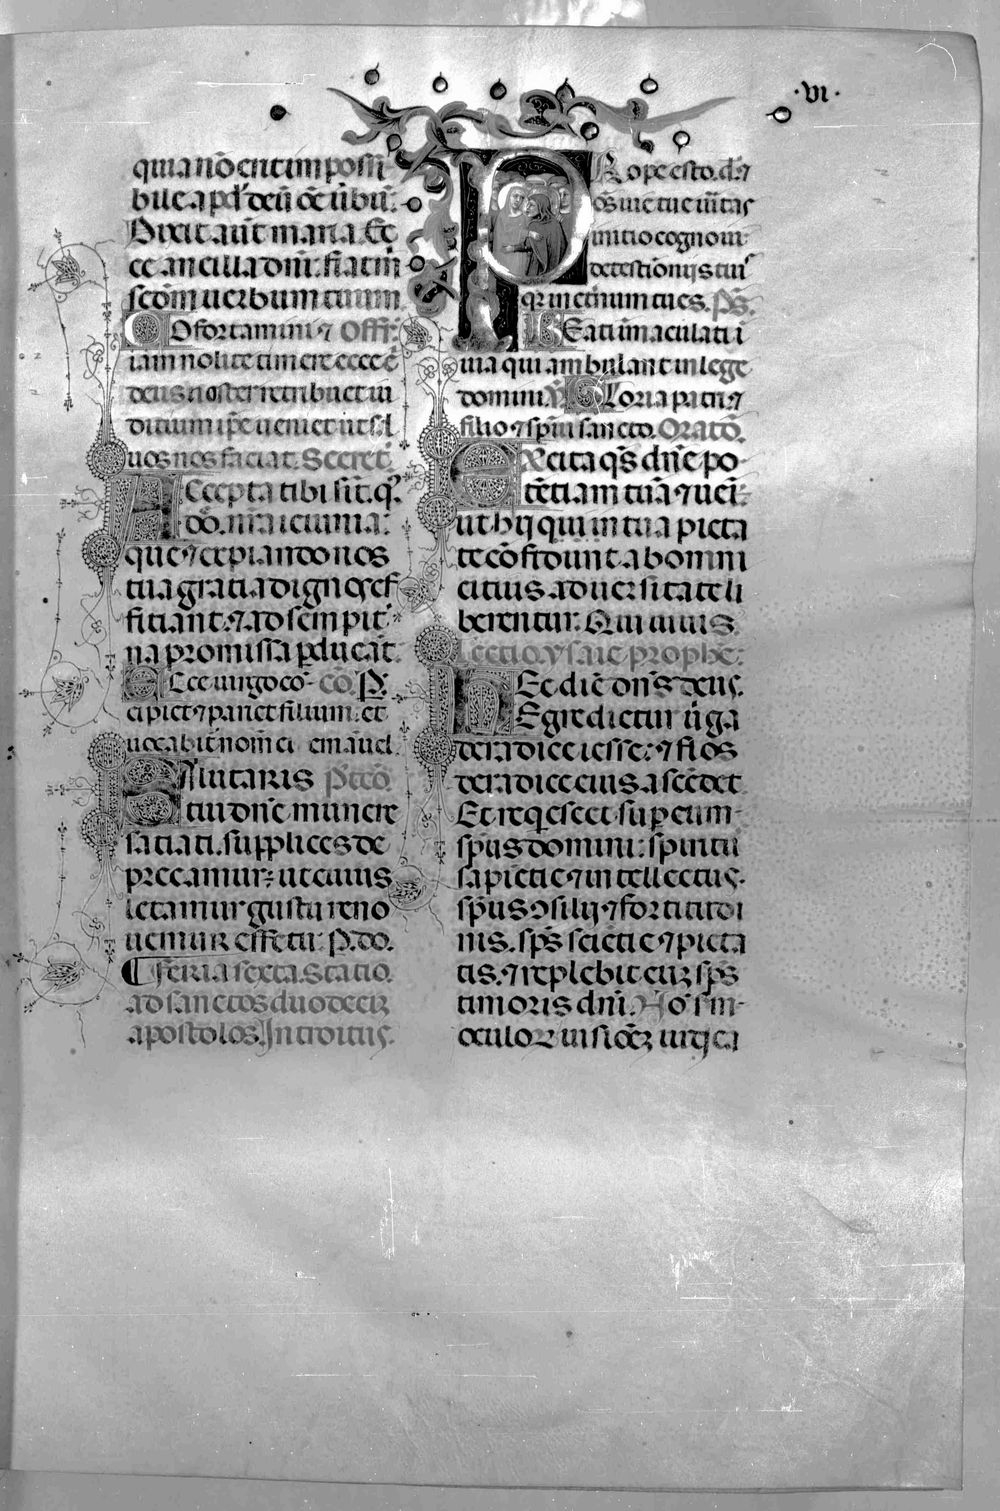 ·vi·
quia nō erit impossi
bile apd' deū oē ūbū.
Dixit aūt maria. Ec
ce ancilla dnī: fiat m̄
scdm uerbum tuum
COfortamini ⁊ Offr̄.
iam nolite timere ecce ē
deus noster retribuet iu
dicium ip̄e ueniet ⁊ sal
uos nos faciat. Secret.
ACcepta tibi sīt. qs.
dō. nr̄a ieiunia:
que ⁊ expiando nos
tua gratia dignos ef
ficiant. ⁊ ad sempit
na promissa pducāt.
ECce uirgo cō- cō. P.
cipiet ⁊ pariet filium: et
uocabit nomē ei emanuel.
SAlutaris Pt̄cō
tui dnē munere
satiati. supplices de
precamur: ut cuius
letamur gustu reno
uemur effectu: P. do.
Feria sexta. Statio.
ad sanctos duodeciz
apostolos. Introitus.
PRope esto. dn̄e ⁊
oēs uie tue ūitas
initio cognoui
de testiōnijs tuis
qr in etnum tu es. Ps.
BEati īmaculati ī
uia qui ambulant in lege
domini. V. GLoria patri ⁊
filio ⁊ spūi sancto. Oratō.
EXcita qs dnē po-
tētiam tuā ⁊ uei:
ut hij qui in tua pieta
te cōfidunt. ab omni
citius aduersitate li
berentur. Qui uiuis.
Lectio. ysaie prophē:
HEc dič dn̄s deus.
Egredietur ūga
de radice iesse: ⁊ flos
de radice eius ascēdet
Et reqescet sup eum
spūs domini: spiritu
sapiētie ⁊ intellectus.
spūs ɔsilij ⁊ fortitudi
nis. spūs sciētie ⁊ pieta
tis. ⁊ replebit eūz spūs
timoris dnī. Nō sm
oculorꝝ uisiōez iudica